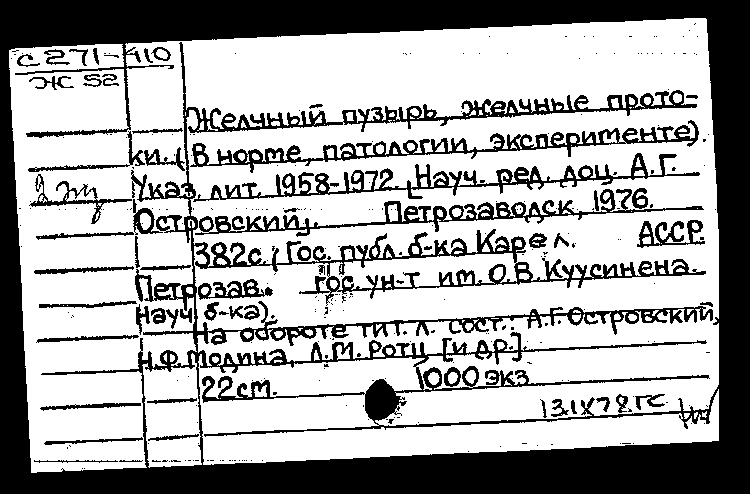 С 271-410
Ж 52
Желчный пузырь, желчные прото-
ки. (В норме, патологии, эксперименте).
2 экз Указ. лит. 1958-1972. [Науч. ред. доц. А.Г.
Островский]. Петрозаводск, 1976.
382с. (Гос. публ. б-ка Карел. АССР.
Петрозав. гос. ун-т им. О.В. Куусинена.
Науч. б-ка).
На обороте тит. л. сост.: А.Г. Островский,
Н.Ф. Модина, Л.М. Ротц [и др.].
22 см. 1000 экз
13.IX 78 ГС